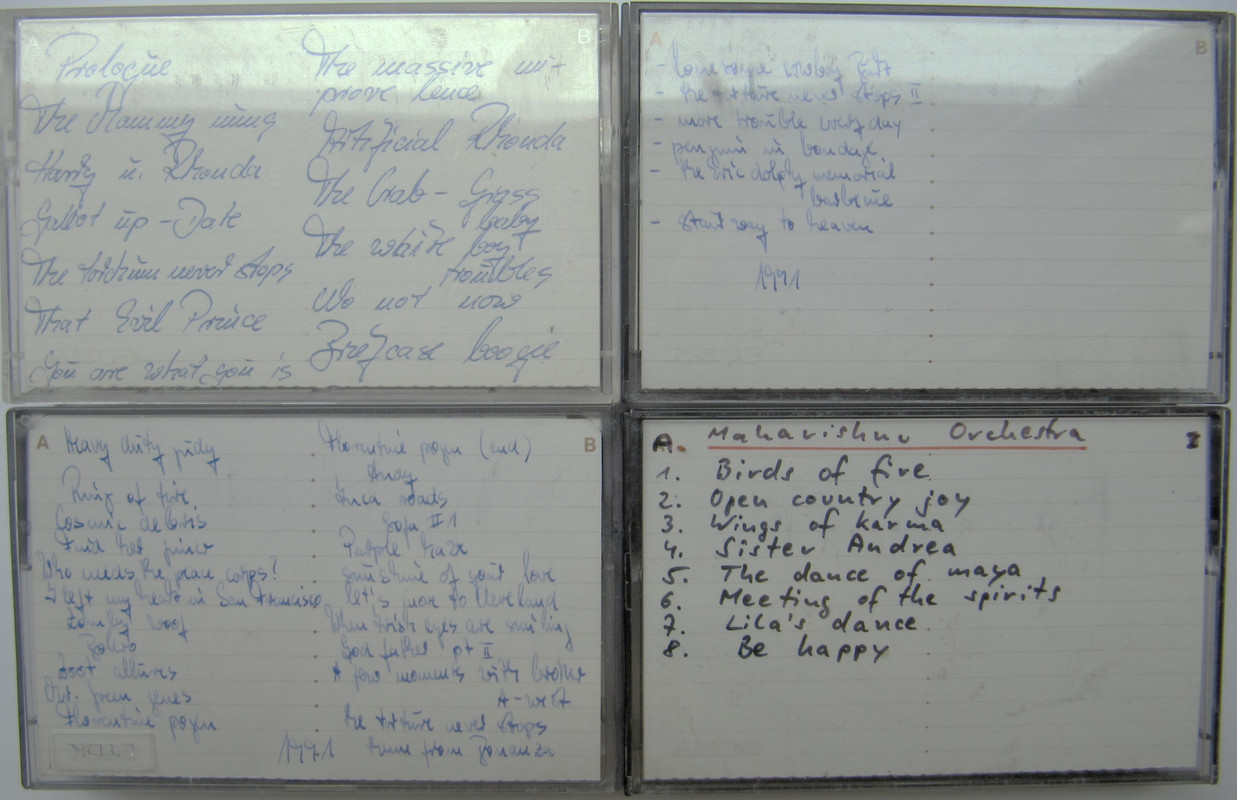 A
B
Prologue
The Mammy nuns
Harry u. Rhonda
Galoot up-Date
The torchum never stops
That Evil Prince
You are what you is
The massive im-
prove lence
Artificial Rhonda
The Crab-Grass
baby
The white boy
troubles
No not now
Briefcase boogie
A
B
- lonesome cowboy Burt
- the torture never stops II
- more trouble every day
- penguin in bondage
- the eric dolphy memorial
barbecue
- stairway to heaven
1991
A
B
Heavy duty judy
Ring of fire
Cosmic debris
Find her finer
Who needs the peace corps?
I left my heart in San Francisco
Zomby woof
Bolero
Zoot allures
Mr. green genes
Florentine pogen
1991
Florentine pogen (end)
Andy
Inca roads
Sofa II 1
Purple haze
Sunshine of your love
let's move to Cleveland
When Irish eyes are smiling
God father pt II
A few moments with brother
A-west
the torture never stops
theme from Bonanza
A. Maharishnu Orchestra
1. Birds of fire
2. Open country joy
3. Wings of karma
4. Sister Andrea
5. The dance of maya
6. Meeting of the spirits
7. Lila's dance
8. Be happy